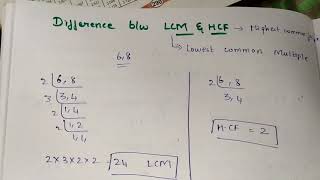 Difference b/w LCM & HCF → Highest common
↳ Lowest common Multiple
6,8
2 | 6, 8
3 | 3, 4
2 | 1, 4
2 | 1, 2
1, 1
2×3×2×2 = 24 LCM
2 | 6, 8
3, 4
HCF = 2